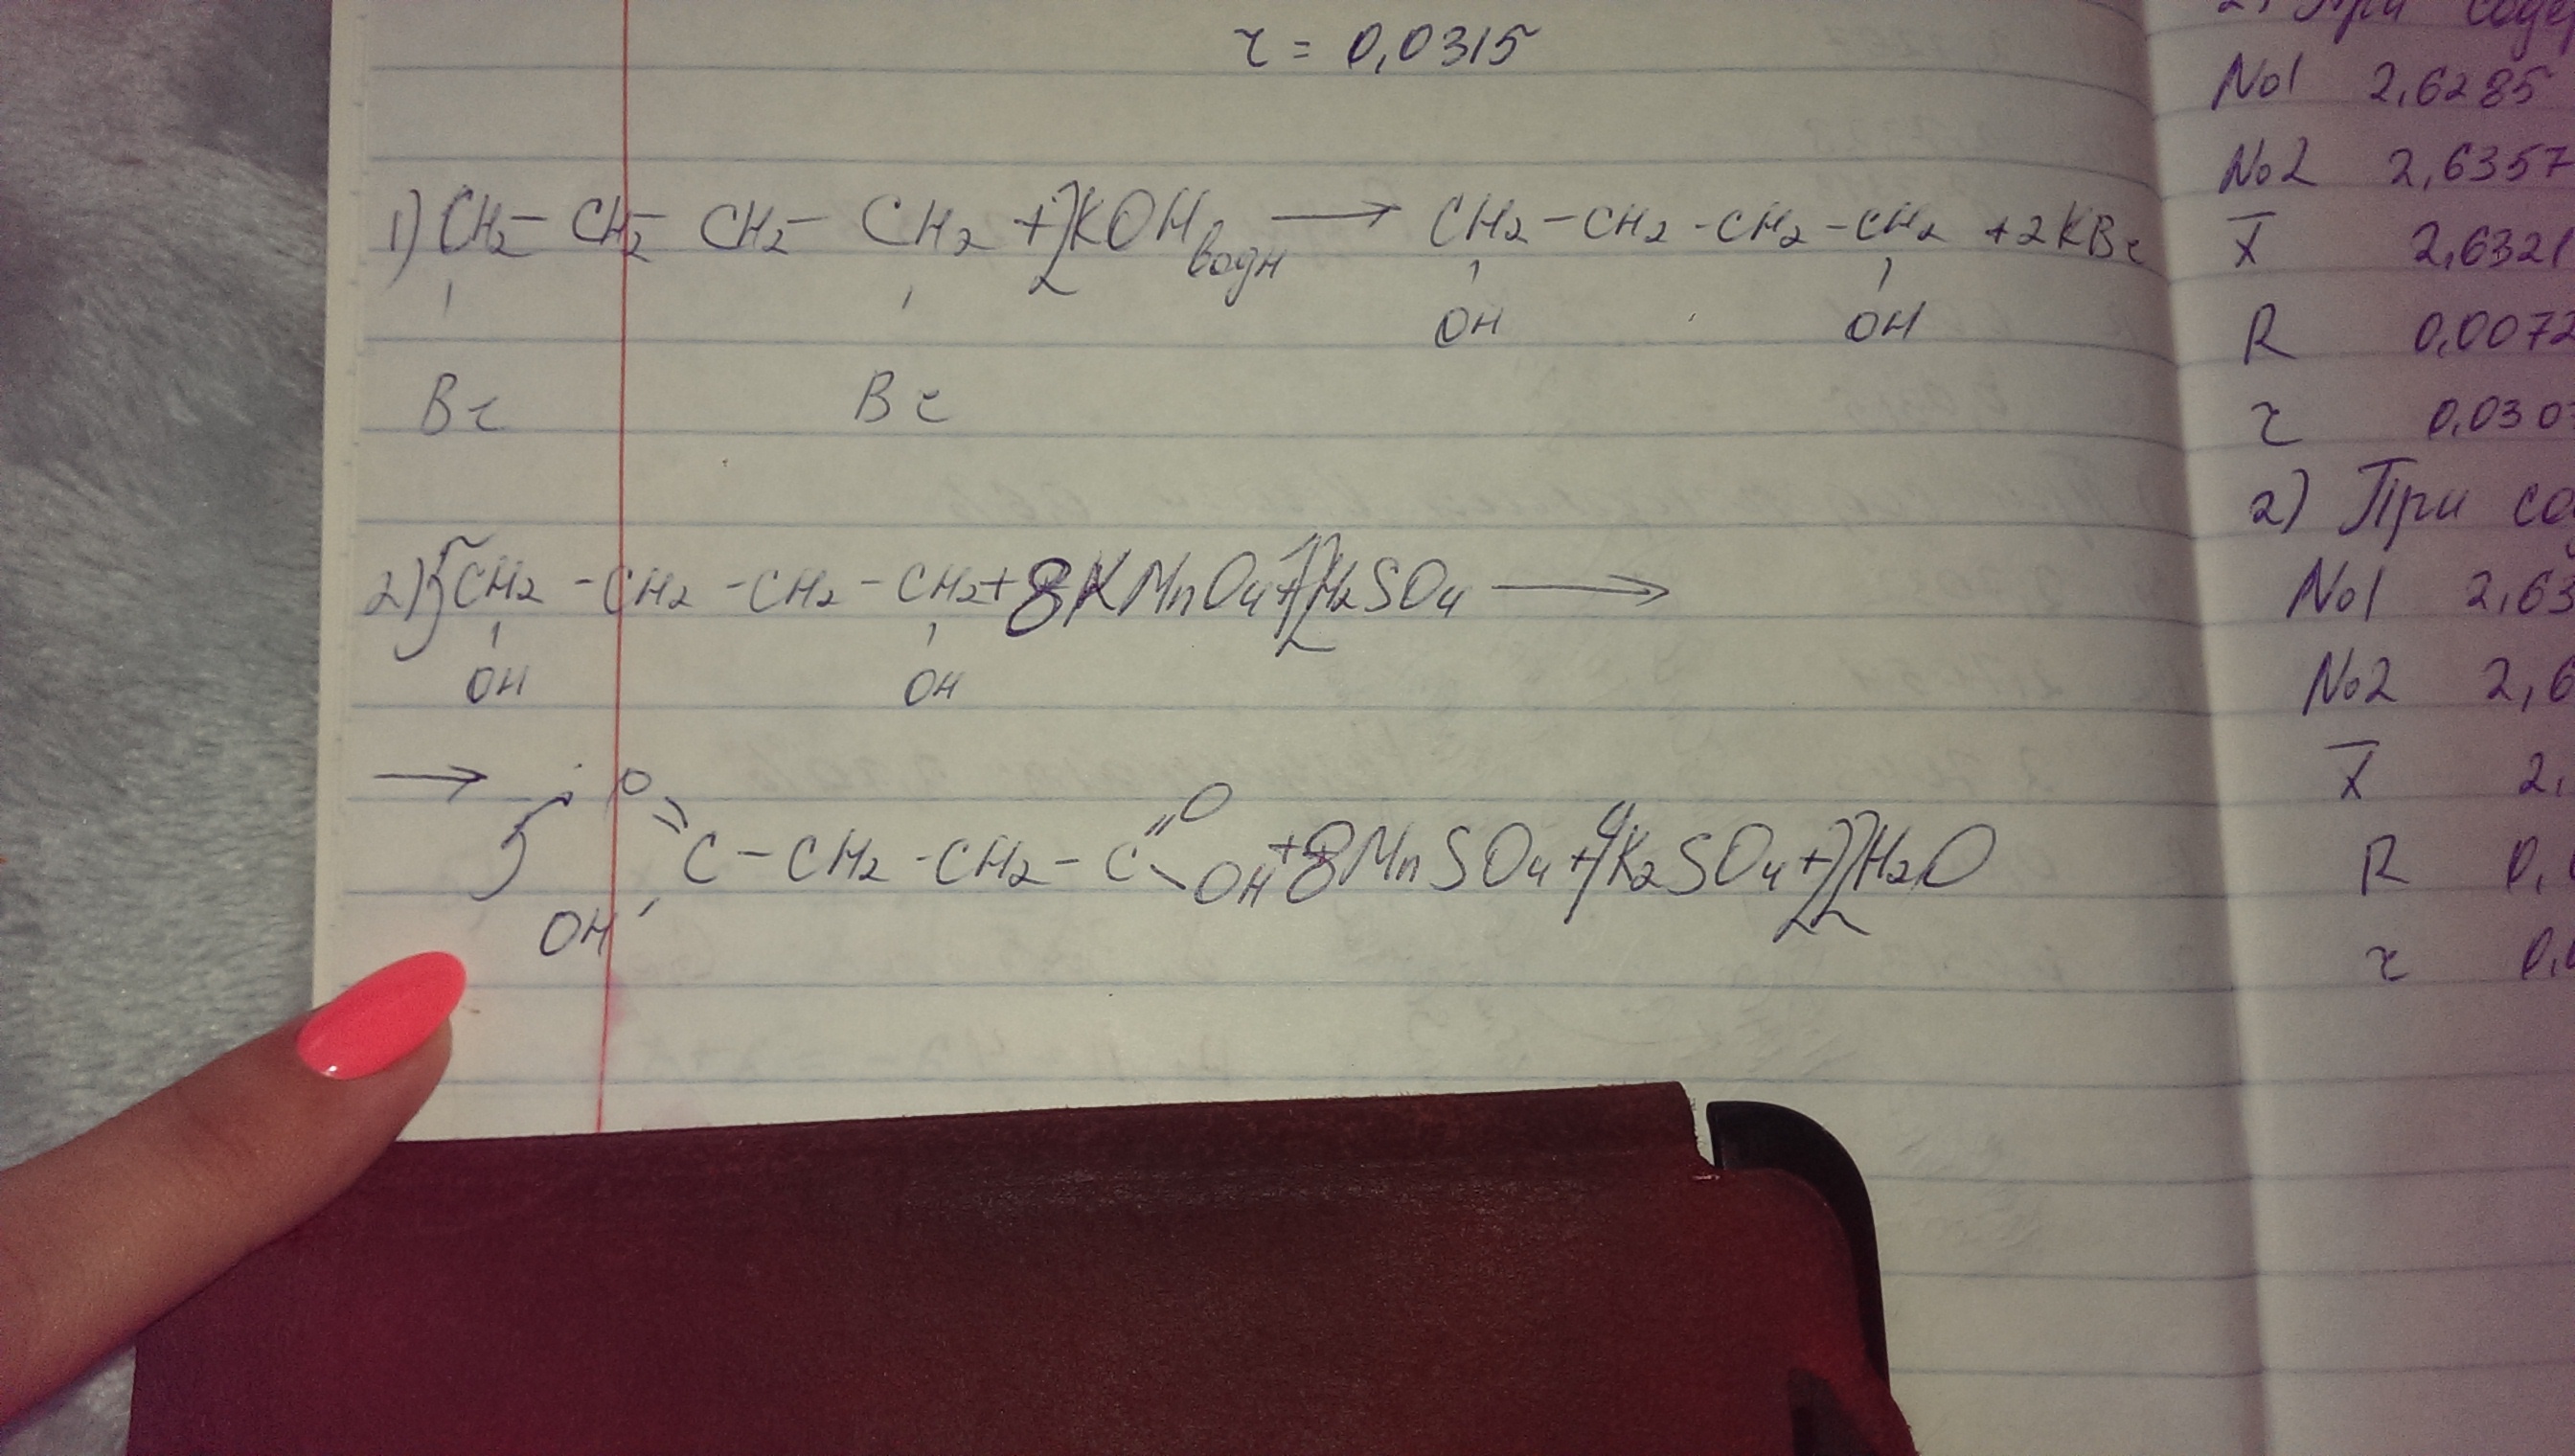 r = 0,0315
1) CH2 - CH2 - CH2 - CH2 + 2KOH водн → CH2 - CH2 - CH2 - CH2 + 2KBr
OH OH
Br Br
2) 5CH2 - CH2 - CH2 - CH2 + 8KMnO4 + 12H2SO4 →
OH OH
→ 5 O=C - CH2 - CH2 - C=O OH + 8MnSO4 + 4K2SO4 + 22H2O
OH
2) При
№1 2,6285
№2 2,6357
X̅ 2,6321
R 0,0072
r 0,030
2) При со
№1 2,63
№2 2,6
X̅ 2,
R 0,
r 0,